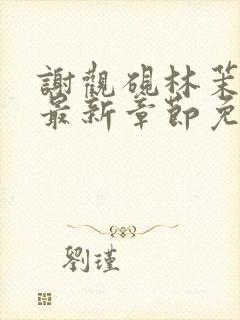 謝觀硯林茉
最新章節免
劉瑾